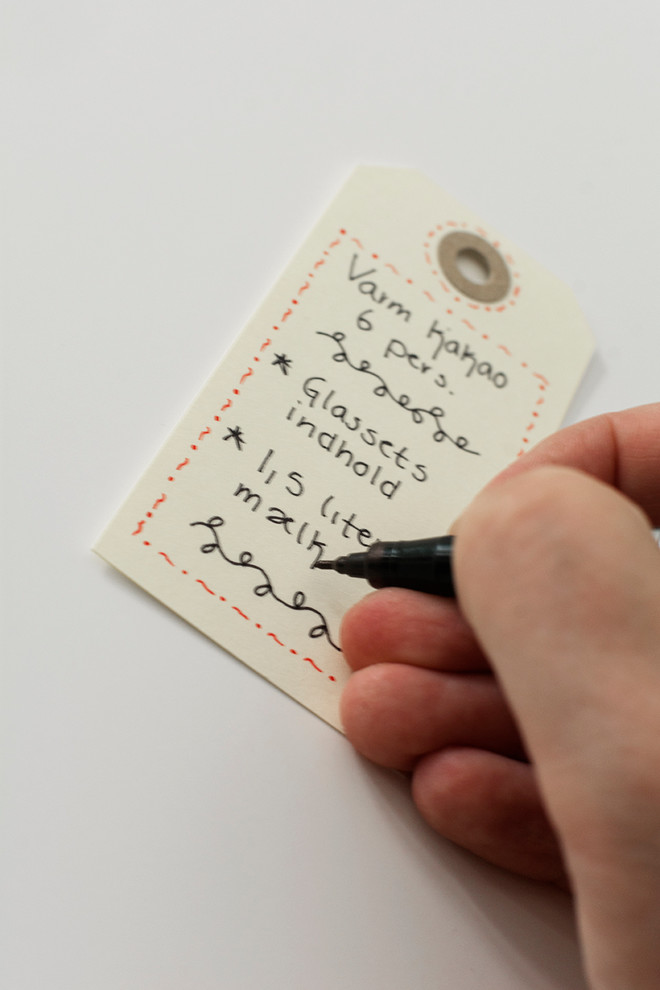 Varm Kakao
6 pers.
* Glassets
indhold
* 1,5 lite
mælk